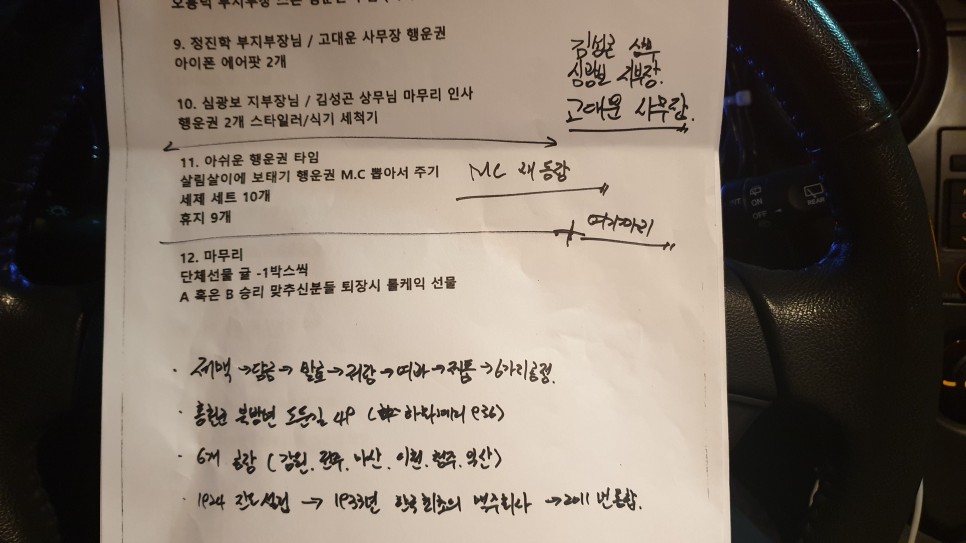 9. 정진학 부지부장님 / 고대운 사무장 행운권
아이폰 에어팟 2개
김성곤 상무
심광보 지부장.
고대운 사무장.
10. 심광보 지부장님 / 김성곤 상무님 마무리 인사
행운권 2개 스타일러/식기 세척기
11. 아쉬운 행운권 타임
살림살이에 보태기 행운권 M.C 뽑아서 주기
세제 세트 10개
휴지 9개
MC 재등장
12. 마무리
단체선물 귤 -1박스씩
A 혹은 B 승리 맞추신분들 퇴장시 롤케익 선물
· 제맥 → 담금 → 발효 → 저장 → 여과 → 제품 → 6가지 공정.
· 홍천군 북방면 도둔길 49 (하화계리 936)
· 6개 공장 (강원, 전주, 마산, 이천, 청주, 익산)
· 1924 진로설립 → 1933년 한국최초의 맥주회사 → 2011년 통합.
ON
OFF
REAR